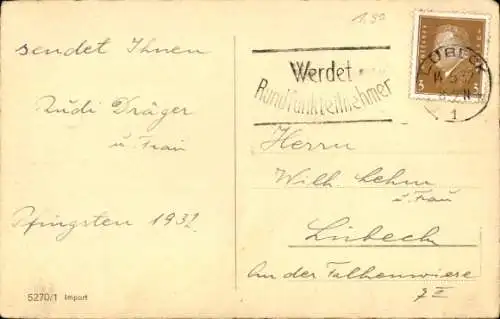 1.50
sendet Ihnen
Rudi Dräger
u. Frau
Pfingsten 1932
5270/1 Import
Werdet
Rundfunkteilnehmer
LÜBECK
1
5
Herrn
Wilh. Lehm
u. Frau
Lübeck
An der Falkenwiese